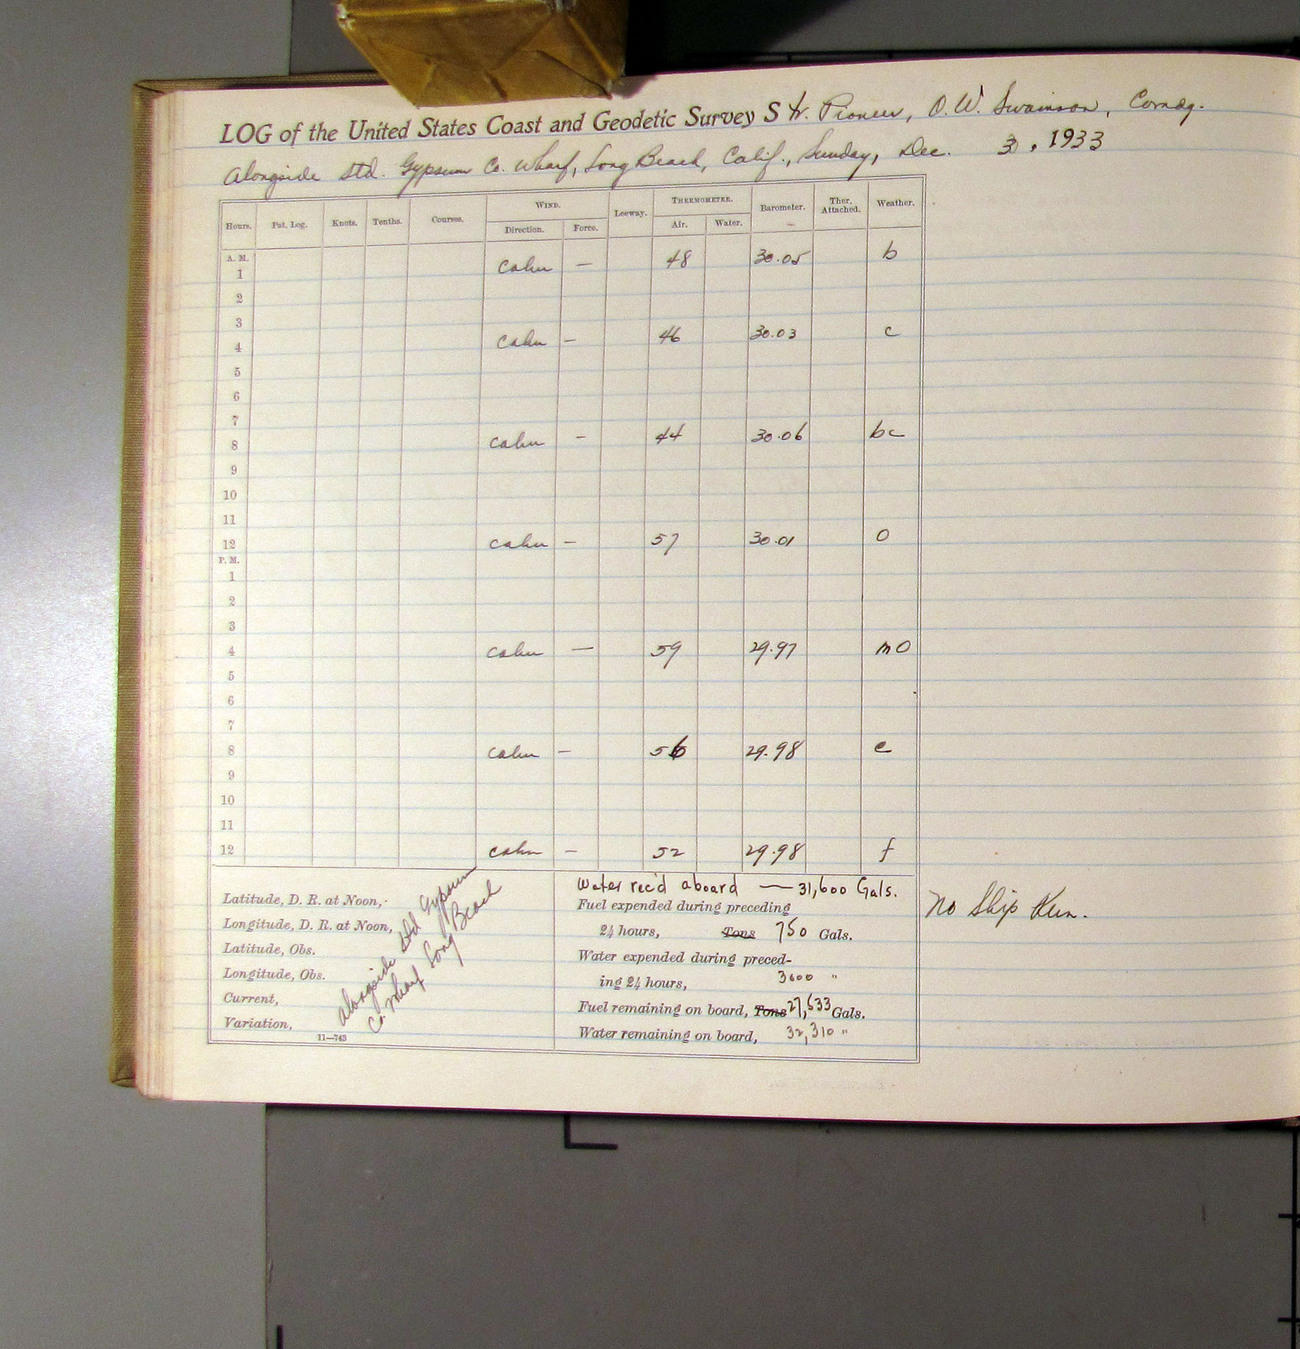 LOG of the United States Coast and Geodetic Survey Str. Pioneer, O.W. Swainson, Comdg.
Alongside Std. Gypsum Co. Wharf, Long Beach, Calif., Sunday, Dec. 3, 1933
WIND. THERMOMETER.
Hours. Pat. Log. Knots. Tenths. Courses. Direction. Force. Leeway. Air. Water. Barometer. Ther. Attached. Weather.
A. M.
1 calm — 48 30.05 b
2
3
4 calm — 46 30.03 c
5
6
7
8 calm — 44 30.06 bc
9
10
11
12 calm — 57 30.01 O
P. M.
1
2
3
4 calm — 59 29.97 mO
5
6
7
8 calm — 56 29.98 c
9
10
11
12 calm — 52 29.98 f
Latitude, D. R. at Noon,
Longitude, D. R. at Noon,
Latitude, Obs.
Longitude, Obs.
Current,
Variation,
11—743
Alongside Std Gypsum
Co. Wharf Long Beach
Water rec'd aboard — 31,600 Gals.
Fuel expended during preceding
24 hours, Tons 750 Gals.
Water expended during preced-
ing 24 hours, 3600 "
Fuel remaining on board, Tons 27,533 Gals.
Water remaining on board, 32,310 "
No Ship Run.